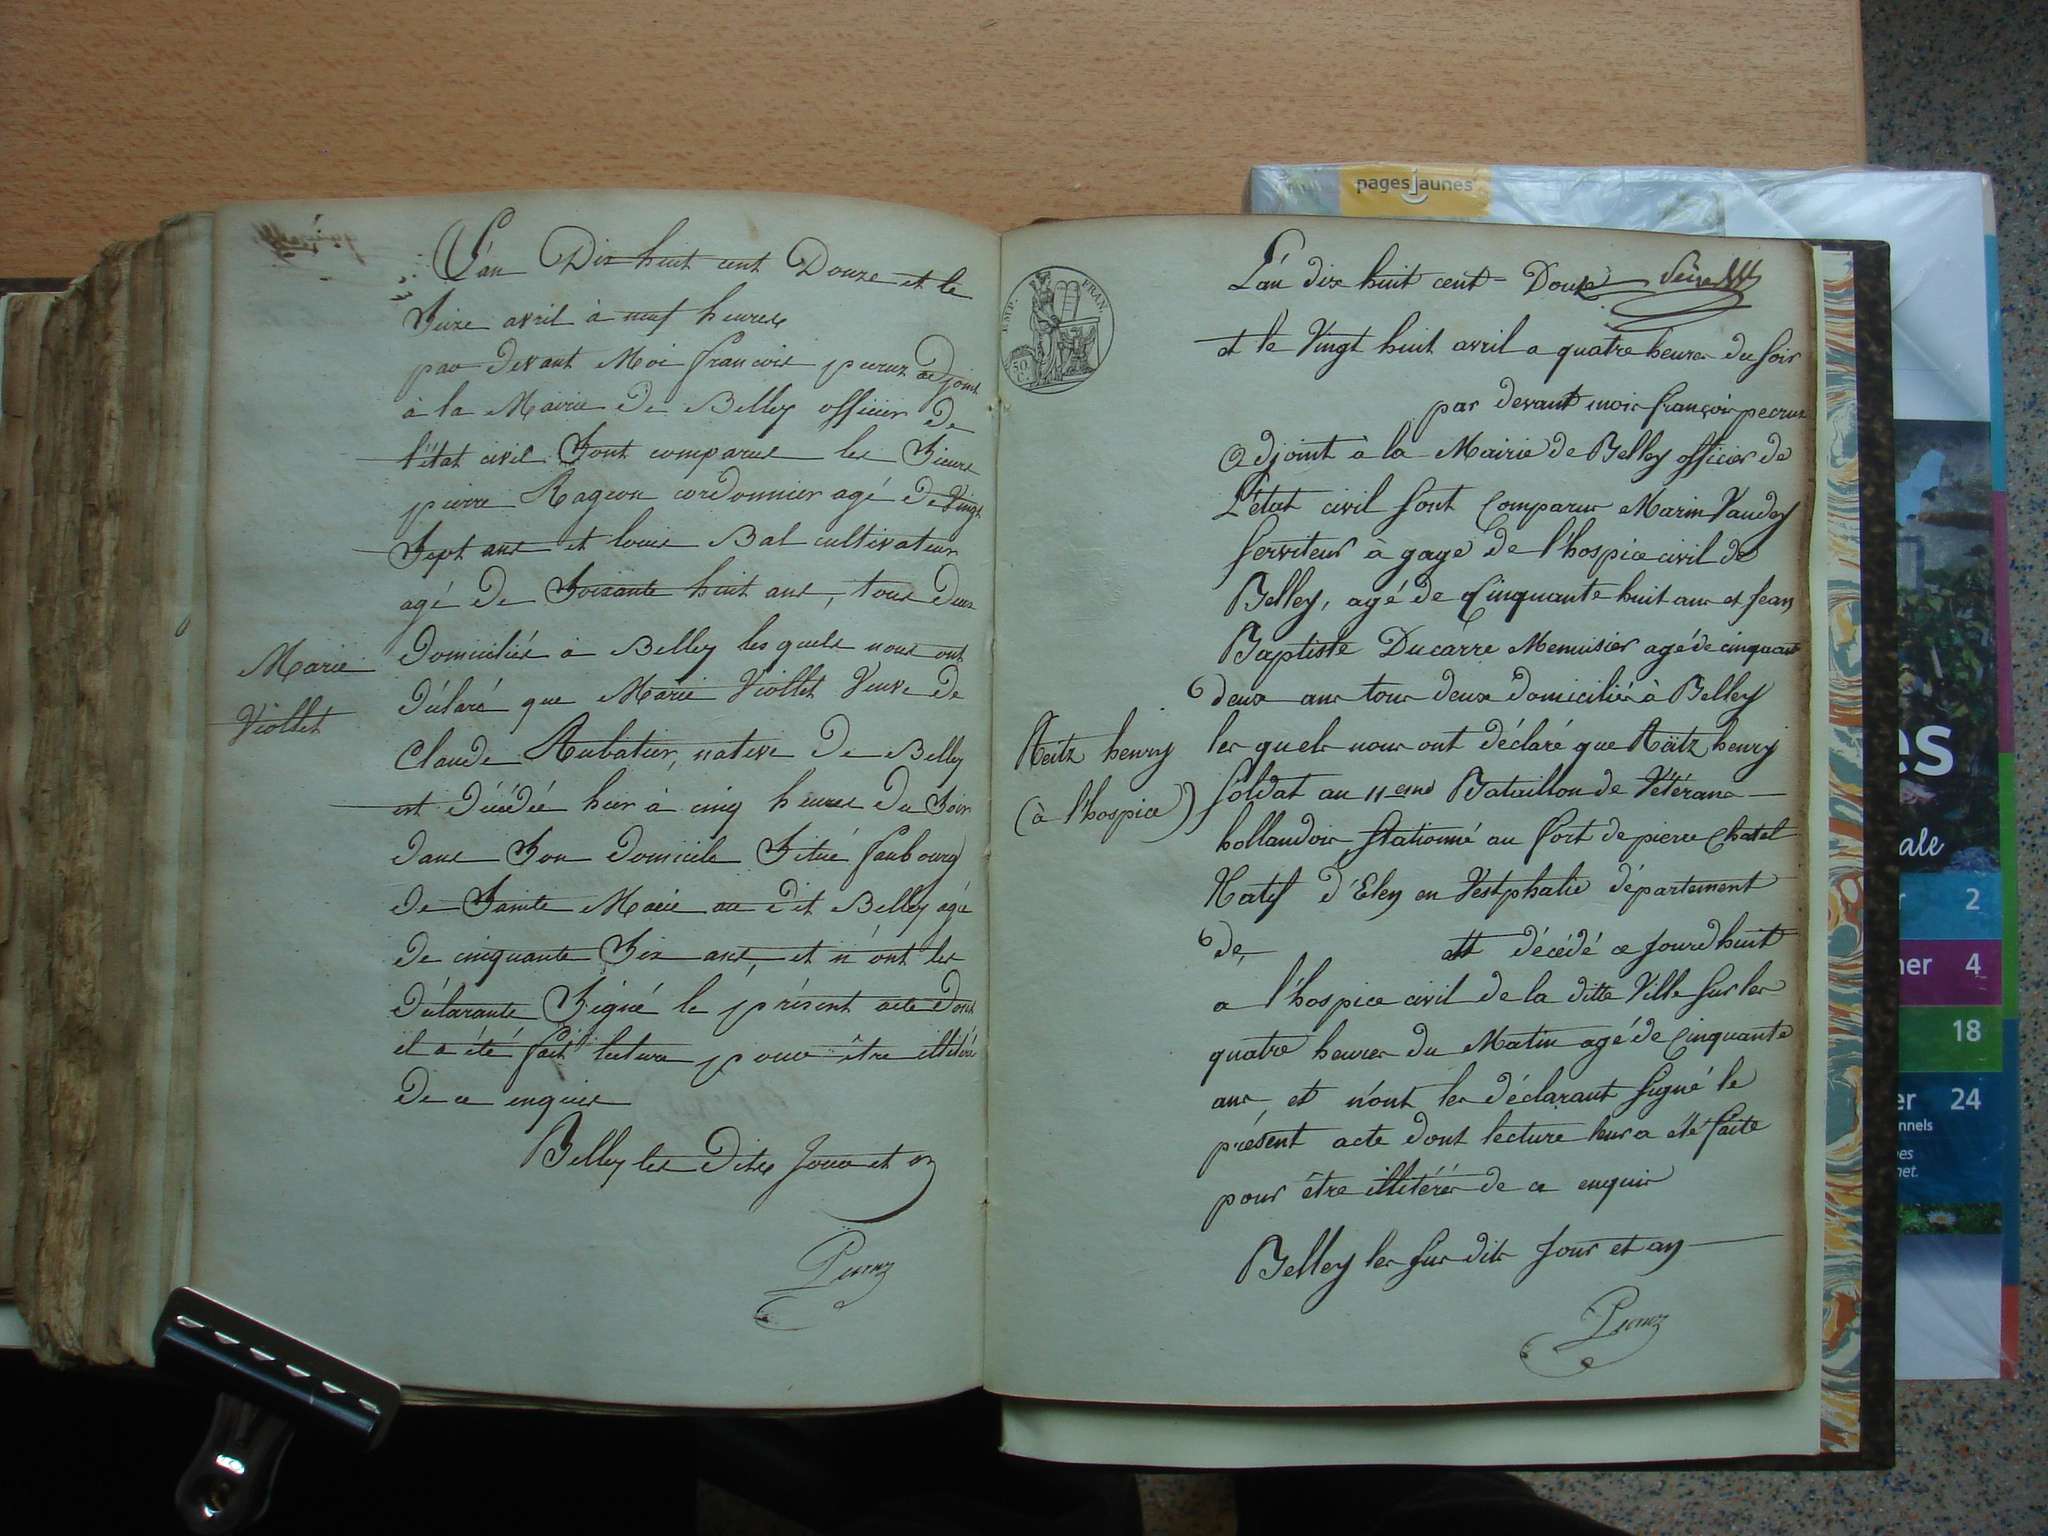 L'an Dix huit cent Douze et le
Seize avril à neuf heures
par devant Moi françois peeruz adjoint
à la Mairie de Belley officier de
l'état civil Sont comparus les Sieurs
pierre Rageon cordonnier agé de Vingt
Sept ans et louis Bal cultivateur
agé de Soixante huit ans, tous deux
Domiciliés à Belley les quels nous ont
Déclaré que Marie Viollet Veuve de
Claude Rubatier, native de Belley
est décédée hier à cinq heures du Soir
dans Son domicile Situé faubourg
de Sainte Marie au dit Belley agée
de cinquante Six ans, et n'ont les
déclarants Signé le présent acte dont
il a été fait lecture pour être illitérés
De ce enquis
Belley les Dits Jour et an
Marie
Viollet
EMP. FRAN.
50 C.
L'an dix huit cent Douze
et le Vingt huit avril a quatre heures du soir
par devant mois françois peeruz
adjoint à la Mairie de Belley officier de
L'état civil sont Comparus Marin Vaudey
serviteur à gage de l'hospice civil de
Belley, agé de Cinquante huit ans et Jean
Baptiste Ducarre Menuisier agé de cinquante
deux ans tous deux domiciliés à Belley
les quels nous ont déclaré que Räitz henry
soldat au 11eme Bataillon de Vétérans
hollandois stationné au fort de pierre Chatel
Natif d'Elen en Vestphalie département
de est décédé ce jourd'huit
a l'hospice civil de la ditte Ville sur les
quatre heures du Matin agé de Cinquante
ans, et n'ont les déclarant signé le
présent acte dont lecture leur a été faite
pour être illitérés de ce enquis
Belley les sus dits Jour et an
Raitz henry
(à l'hospice)
pagesjaunes
es
ale
2
her 4
18
er 24
nnels
es
net.